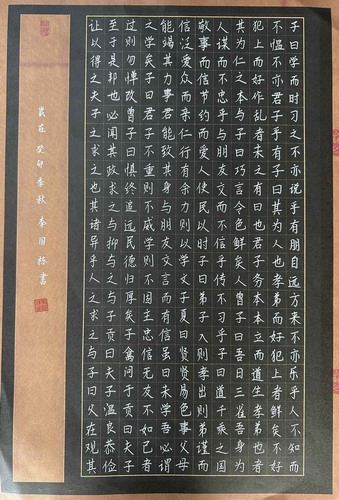 子曰学而时习之不亦说乎有朋自远方来不亦乐乎人不知而
不愠不亦君子乎有子曰其为人也孝弟而好犯上者鲜矣不好
犯上而好作乱者未之有也君子务本本立而道生孝弟也者
其为仁之本与子曰巧言令色鲜矣人曾子曰吾日三省吾身为
人谋而不忠乎与朋友交而不信乎传不习乎子曰道千乘之国
敬事而信节约而爱人使民以时子曰弟子入则孝出则弟谨而
信泛爱众而亲仁行有余力则以学文子夏曰贤贤易色事父母
能竭其力事君能致其身与朋友交言而有信虽曰未学吾必谓
之学矣子曰君子不重则不威学则不固主忠信无友不如己者
过则勿惮改曾子曰慎终追远民德归厚矣子禽问于子贡曰夫子
至于是邦也必闻其政求之与抑与之与子贡曰夫子温良恭俭
让以得之夫子之求之也其诸异乎人之求之与子曰父在观其
岁在癸卯季秋李国书